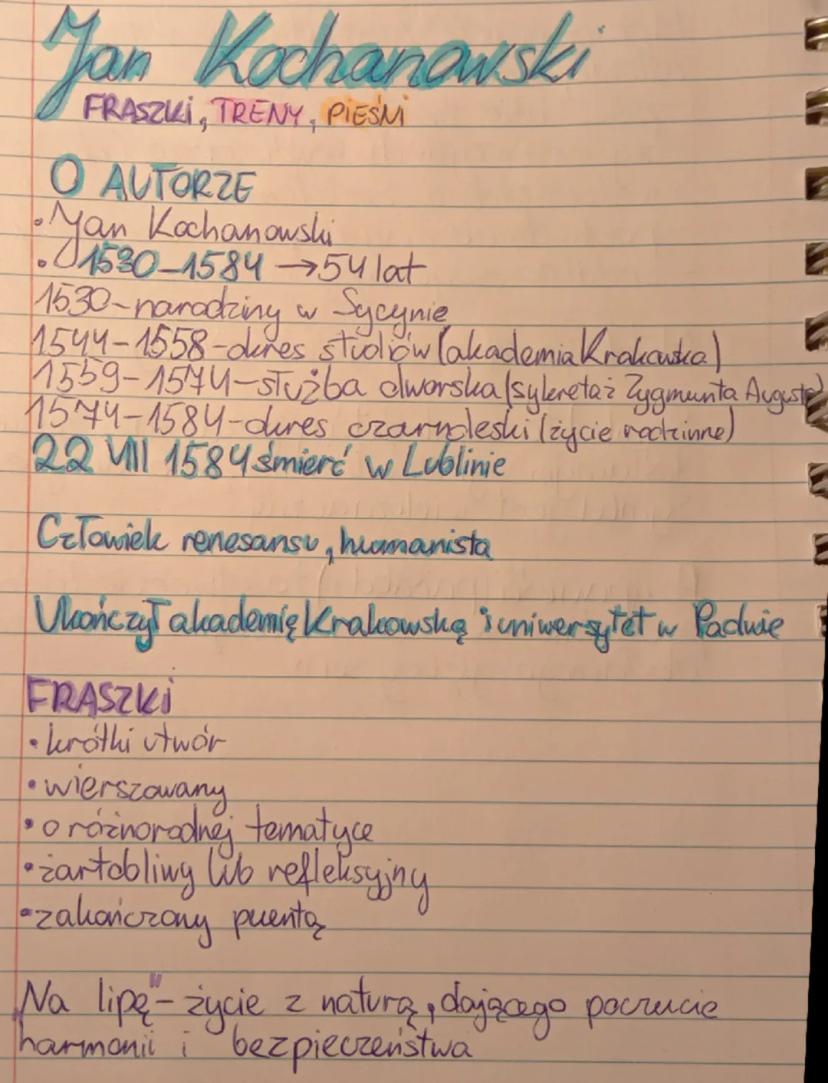 Jan Kochanowski
FRASZKi, TRENY, PIEŚNI
O AUTORZE
• Jan Kochanowski
• 1530-1584 → 54 lat
1530-narodziny w Sycynie
1544-1558-okres studiów (akademia Krakowska)
1559-1574-służba dworska (sykretaż Zygmunta Augusta)
1574-1584-okres czarnoleski (życie rodzinne)
22 VIII 1584 śmierć w Lublinie
Człowiek renesansu, humanista
Ukończył akademię Krakowską i uniwersytet w Padwie
FRASZKi
• krótki utwór
• wierszowany
• o różnorodnej tematyce
• żartobliwy lub refleksyjny
• zakończony puentą
„Na lipę"- życie z naturą, dającego poczucie
harmonii i bezpieczeństwa